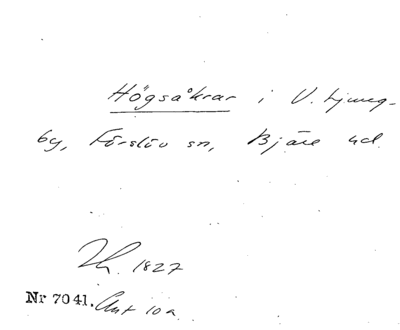 Högsåkrar i V. Ljung-
by, Förslöv sn, Bjäre hd.
1827
Nr 7041. Ant 10a